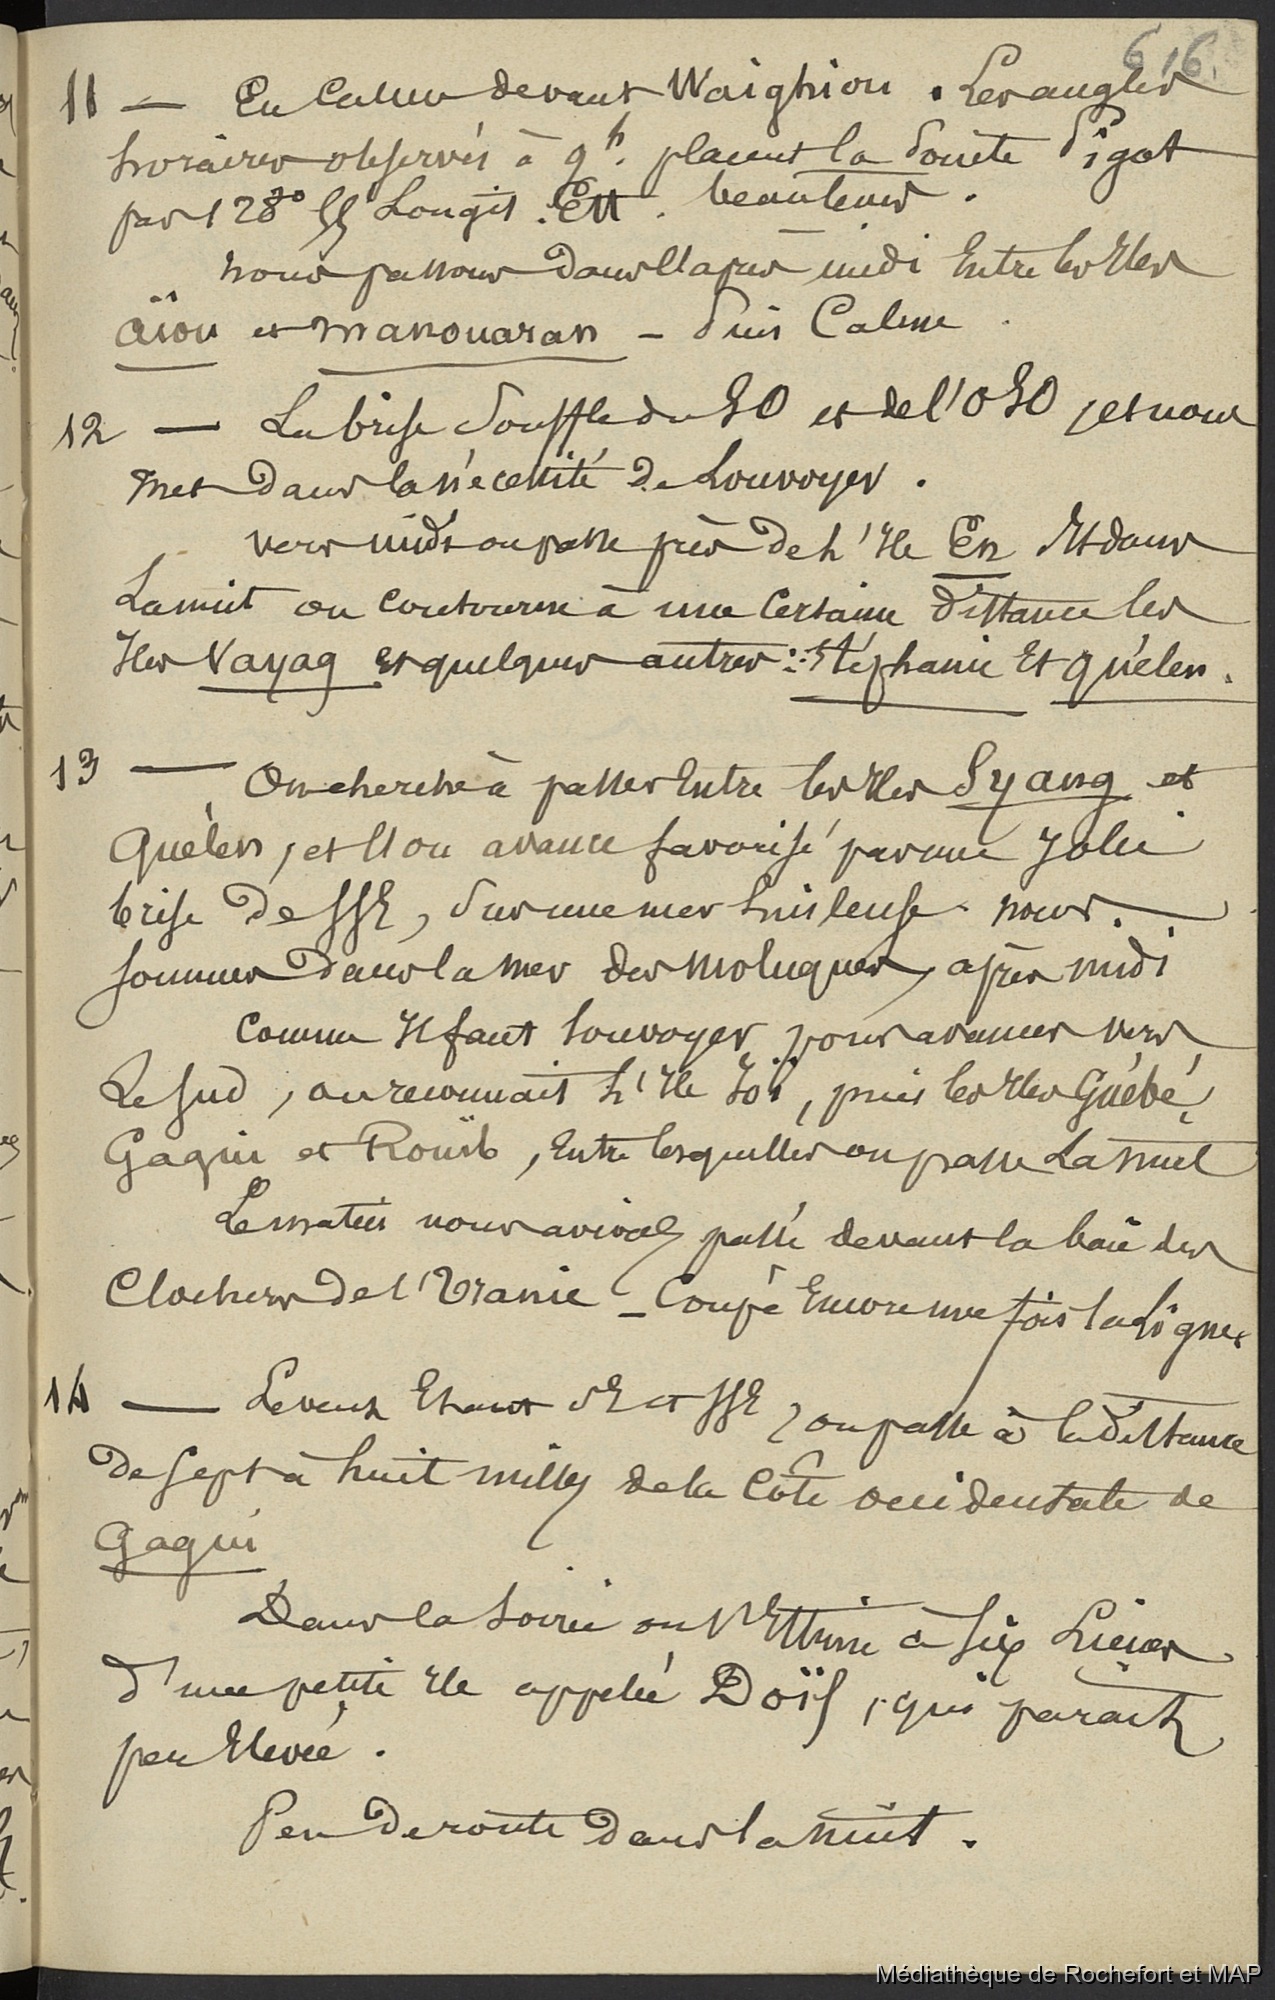 616
11 — En Calme devant Waighiou. Les angles
horaires observés à 9h. placent la pointe Pigot
par 128° 55 Longit. Est. beau temps.
nous passons dans l'après midi Entre les Iles
aïou et manouaran — Puis Calme.
12 — La brise souffle du SO et de l'OSO, et nous
met dans la nécessité de Louvoyer.
vers midi on passe près de L'Ile En Et dans
La nuit on contourne à une Certaine distance les
Iles Vayag et quelques autres : Stéphanie Et Quélen.
13 — On cherche à passer Entre les Iles Syang et
Quélen, et l'on avance favorisé par une Jolie
brise de SSE, sur une mer huileuse. nous
sommes dans la mer des moluques, après midi
Comme Il faut louvoyer pour avancer vers
Le sud, on reconnait L'Ile Joï, puis les Iles Guébé,
Gagui et Rouïb, Entre lesquelles on passe La nuit
Le matin nous avions passé devant la baie des
Clochers de l'Uranie — Coupé Encore une fois la Ligne.
14 — Le vent Etant SE et SSE, on passe à la distance
de sept à huit milles de la Côte occidentale de
Gagui
Dans la soirée on S'Estime à six Lieues
d'une petite Ile appelée Doïf, qui parait
peu Elevée.
Peu de route dans la nuit.
Médiathèque de Rochefort et MAP